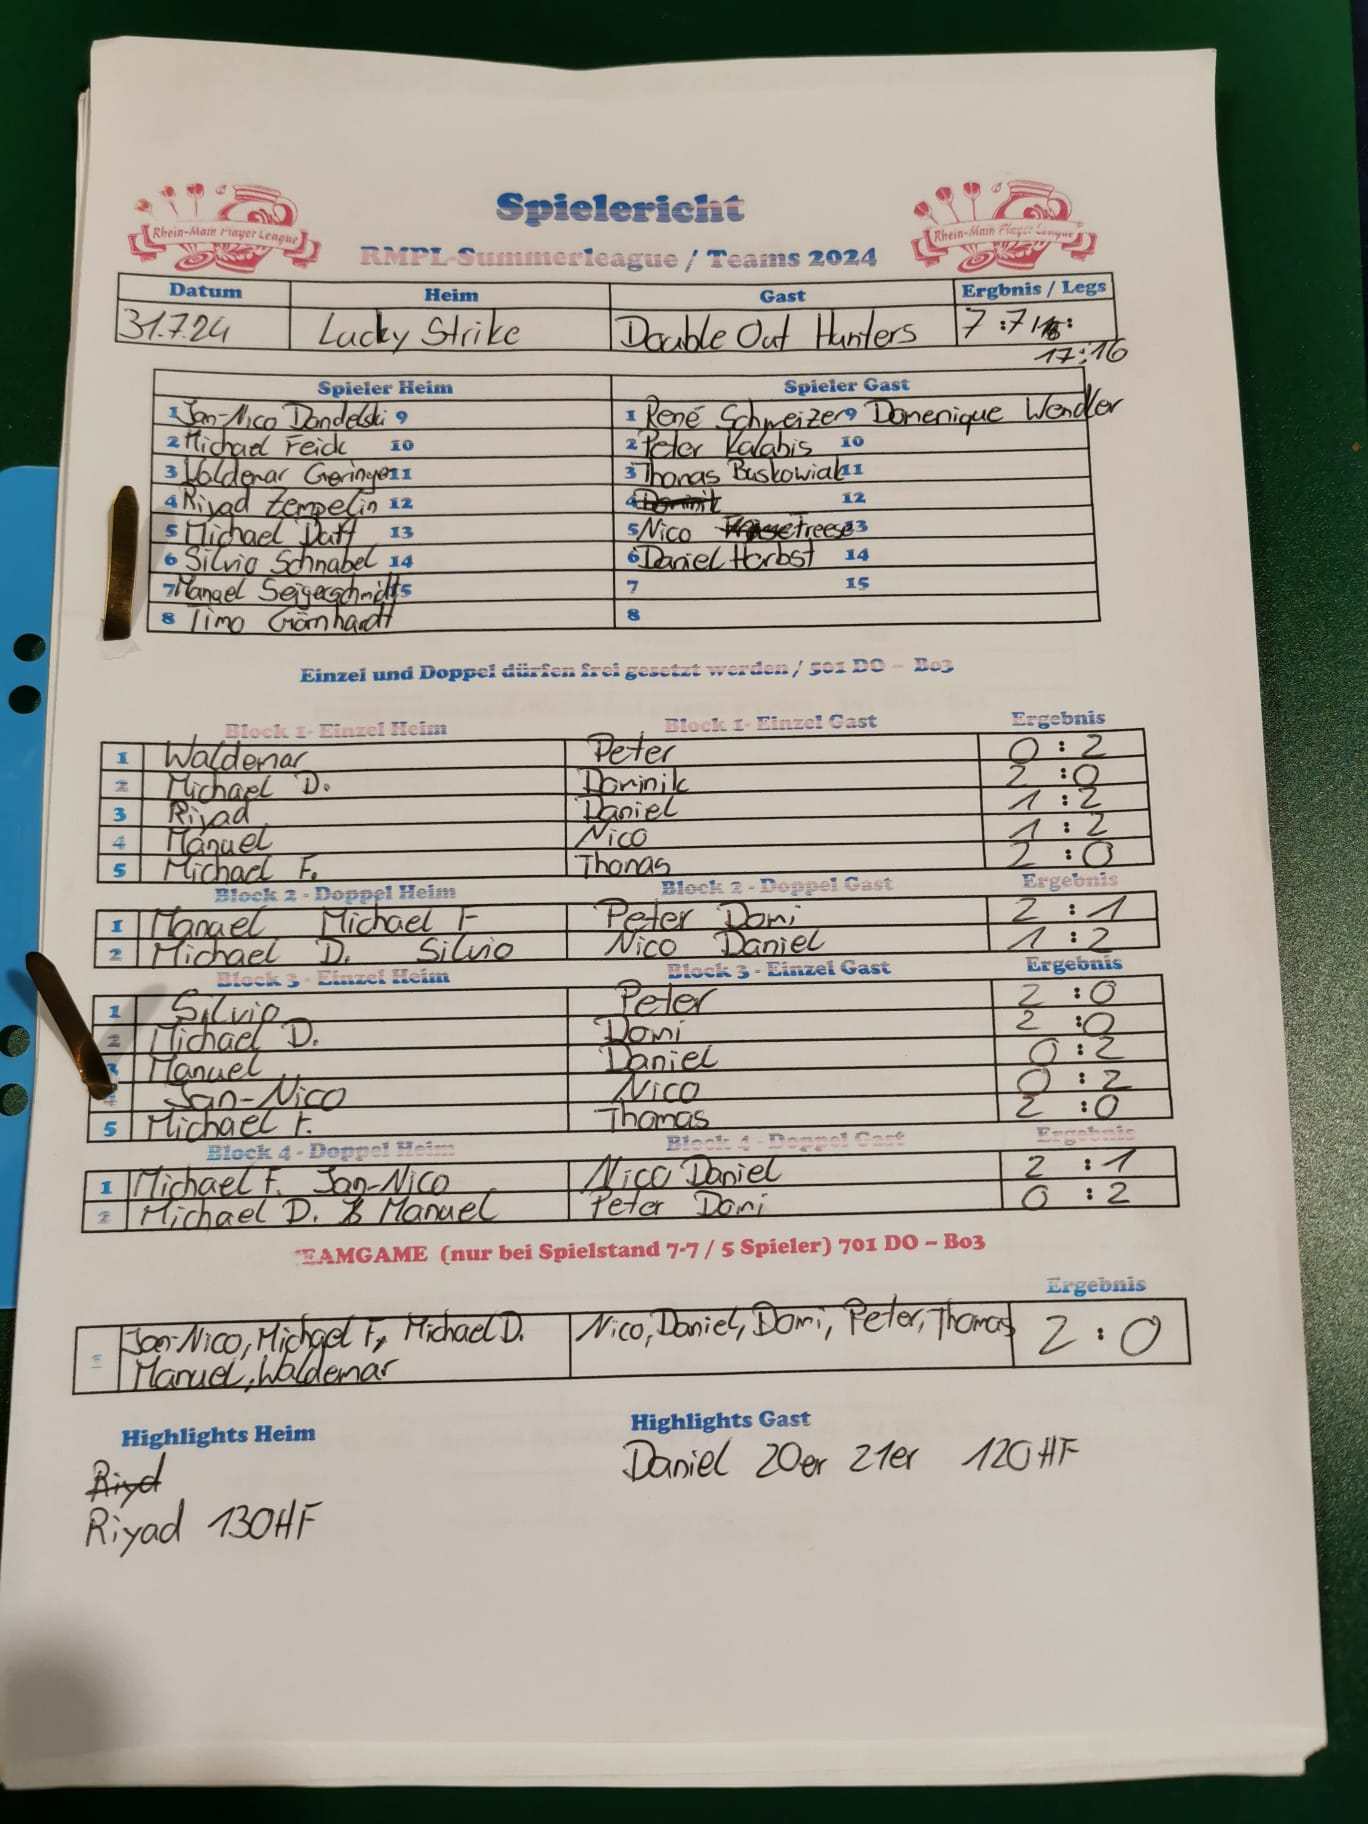 Rhein-Main Player League
Rhein-Main Player League
Spielericht
RMPL-Summerleague / Teams 2024
Datum Heim Gast Ergbnis / Legs
31.7.24 Lucky Strike Double Out Hunters 7:7 / :
17:16
Spieler Heim Spieler Gast
1 Jan-Nico Dandelski 9 1 René Schweizer 9 Domenique Wendler
2 Michael Feick 10 2 Peter Kalabis 10
3 Waldemar Geringer 11 3 Thomas Buskowiak 11
4 Riyad Zempelin 12 4 Dominik 12
5 Michael Datt 13 5 Nico Freese 13
6 Silvio Schnabel 14 6 Daniel Herbst 14
7 Manuel Seigerschmidt 15 7 15
8 Timo Gränhardt 8
Einzel und Doppel dürfen frei gesetzt werden / 501 DO – Bo3
Block 1- Einzel Heim Block 1- Einzel Gast Ergebnis
1 Waldemar Peter 0 : 2
2 Michael D. Dominik 2 : 0
3 Riyad Daniel 1 : 2
4 Manuel Nico 1 : 2
5 Michael F. Thomas 2 : 0
Block 2 - Doppel Heim Block 2 - Doppel Gast Ergebnis
1 Manuel Michael F Peter Domi 2 : 1
2 Michael D. Silvio Nico Daniel 1 : 2
Block 3 - Einzel Heim Block 3 - Einzel Gast Ergebnis
1 Silvio Peter 2 : 0
2 Michael D. Domi 2 : 0
3 Manuel Daniel 0 : 2
4 Jan-Nico Nico 0 : 2
5 Michael F. Thomas 2 : 0
Block 4 - Doppel Heim Block 4 - Doppel Gast Ergebnis
1 Michael F. Jan-Nico Nico Daniel 2 : 1
2 Michael D. Manuel Peter Domi 0 : 2
EAMGAME (nur bei Spielstand 7-7 / 5 Spieler) 701 DO – Bo3
Ergebnis
1 Jan-Nico, Michael F, Michael D. Nico, Daniel, Domi, Peter, Thomas 2 : 0
Manuel, Waldemar
Highlights Heim Highlights Gast
Riyd Daniel 20er 21er 120HF
Riyad 130HF